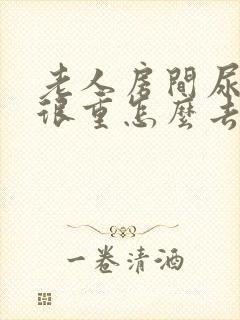 老人房間尿
很重怎麼去
一卷清酒